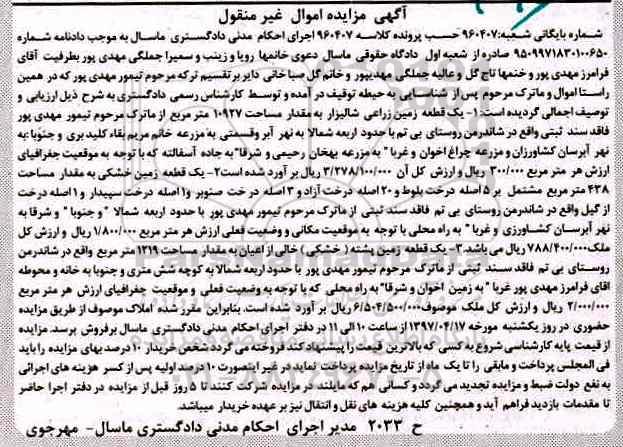 آگهی مزایده اموال غیر منقول
شماره بایگانی شعبه:۹۶۰۴۰۷ حسب پرونده کلاسه ۹۶۰۴۰۷ اجرای احکام مدنی دادگستری ماسال به موجب دادنامه شماره
۹۵۰۹۹۷۱۸۳۰۱۰۰۶۵۰ صادره از شعبه اول دادگاه حقوقی ماسال دعوی خانمها رویا و زینب و سمیرا جملگی مهدی پور بطرفیت آقای
فرامرز مهدی پور و خنمها تاج گل و عالیه جملگی مهدیپور و خاتم گل صبا خانی دایر بر تقسیم ترکه مرحوم تیمور مهدی پور که در همین
راستا اموال و ماترک مرحوم پس از شناسایی به حیطه توقیف در آمده و توسط کارشناس رسمی دادگستری به شرح ذیل ارزیابی و
توصیف اجمالی گردیده است: ۱- یک قطعه زمین زراعی شالیزار به مقدار مساحت ۱۰۹۲۷ متر مربع از ماترک مرحوم تیمور مهدی پور
فاقد سند ثبتی واقع در شاندرمن روستای بی تم با حدود اربعه شمالا به نهر آبر وقسمتی به مزرعه خانم مریم بقاء کلید بری و جنوبا به
نهر آبرسان کشاورزان و مزرعه چراغ اخوان و غربا " به مزرعه بهخان رحیمی و شرقا" به جاده آسفالته که با توجه به موقعیت جغرافیای
ارزش هر متر مربع ۳۰۰/۰۰۰ ریال و ارزش کل آن ۳/۲۷۸/۱۰۰/۰۰۰ ریال بر آورد شده است۲- یک قطعه زمین خشکی به مقدار مساحت
۴۳۸ متر مربع مشتمل بر ۵ اصله درخت بلوط و ۲۰ اصله درخت آزاد و ۳ اصله درخت صنوبر و۱ اصله درخت سپیدار و ۱ اصله درخت
از گیل واقع در شاندرمن روستای بی تم فاقد سند ثبتی از ماترک مرحوم تیمور مهدی پور با حدود اربعه شمالا " و جنوبا " و شرقا به
نهر آبرسان کشاورزی و غربا " به راه محلی با توجه به موقعیت مکانی و وضعیت فعلی ارزش هر متر مربع ۱/۸۰۰/۰۰۰ ریال و ارزش کل
ملک۷۸۸/۴۰۰/۰۰۰ ریال می باشد. ۳- یک قطعه زمین پشته ( خشکی ) خالی از اعیان به مقدار مساحت ۱۲۱۹ متر مربع واقع در شاندرمن
روستای بی تم فاقد سند ثبتی از ماترک مرحوم تیمور مهدی پور با حدود اربعه شمالا به کوچه شش متری و جنوبا به خانه و محوطه
اقای فرامرز مهدی پور غربا " به زمین اخوان و شرقا" به راه محلی که با توجه به وضعیت فعلی و موقعیت جغرافیای ارزش هر متر مربع
۲/۰۰۰/۰۰۰ ریال و ارزش کل ملک موصوف۶/۵۰۴/۵۰۰/۰۰۰ ریال بر آورد شده است. بنابراین مقرر شده املاک موصوف از طریق مزایده
حضوری در روز یکشنبه مورخه ۱۳۹۷/۰۴/۱۷ از ساعت ۱۰ الی ۱۱ در دفتر اجرای احکام مدنی دادگستری ماسال برفروش برسد. مزایده
از قیمت پایه کارشناسی شروع به کسی که بالاترین قیمت را پیشنهاد کند فروخته می گردد شخص خریدار ۱۰ درصد بهای مزایده را باید
فی المجلس پرداخت و مابقی را تا یک ماه از تاریخ مزایده پرداخت نماید در غیر اینصورت ۱۰ درصد اولیه پس از کسر هزینه های اجرائی
به نفع دولت ضبط و مزایده تجدید می گردد و کسانی هم که مایلند در مزایده شرکت کنند تا ۵ روز قبل از مزایده در دفتر اجرا حاضر
تا مقدمات بازدید فراهم آید و همچنین کلیه هزینه های نقل و انتقال نیز بر عهده خریدار میباشد.
ح ۲۰۳۳ مدیر اجرای احکام مدنی دادگستری ماسال- مهرجوی